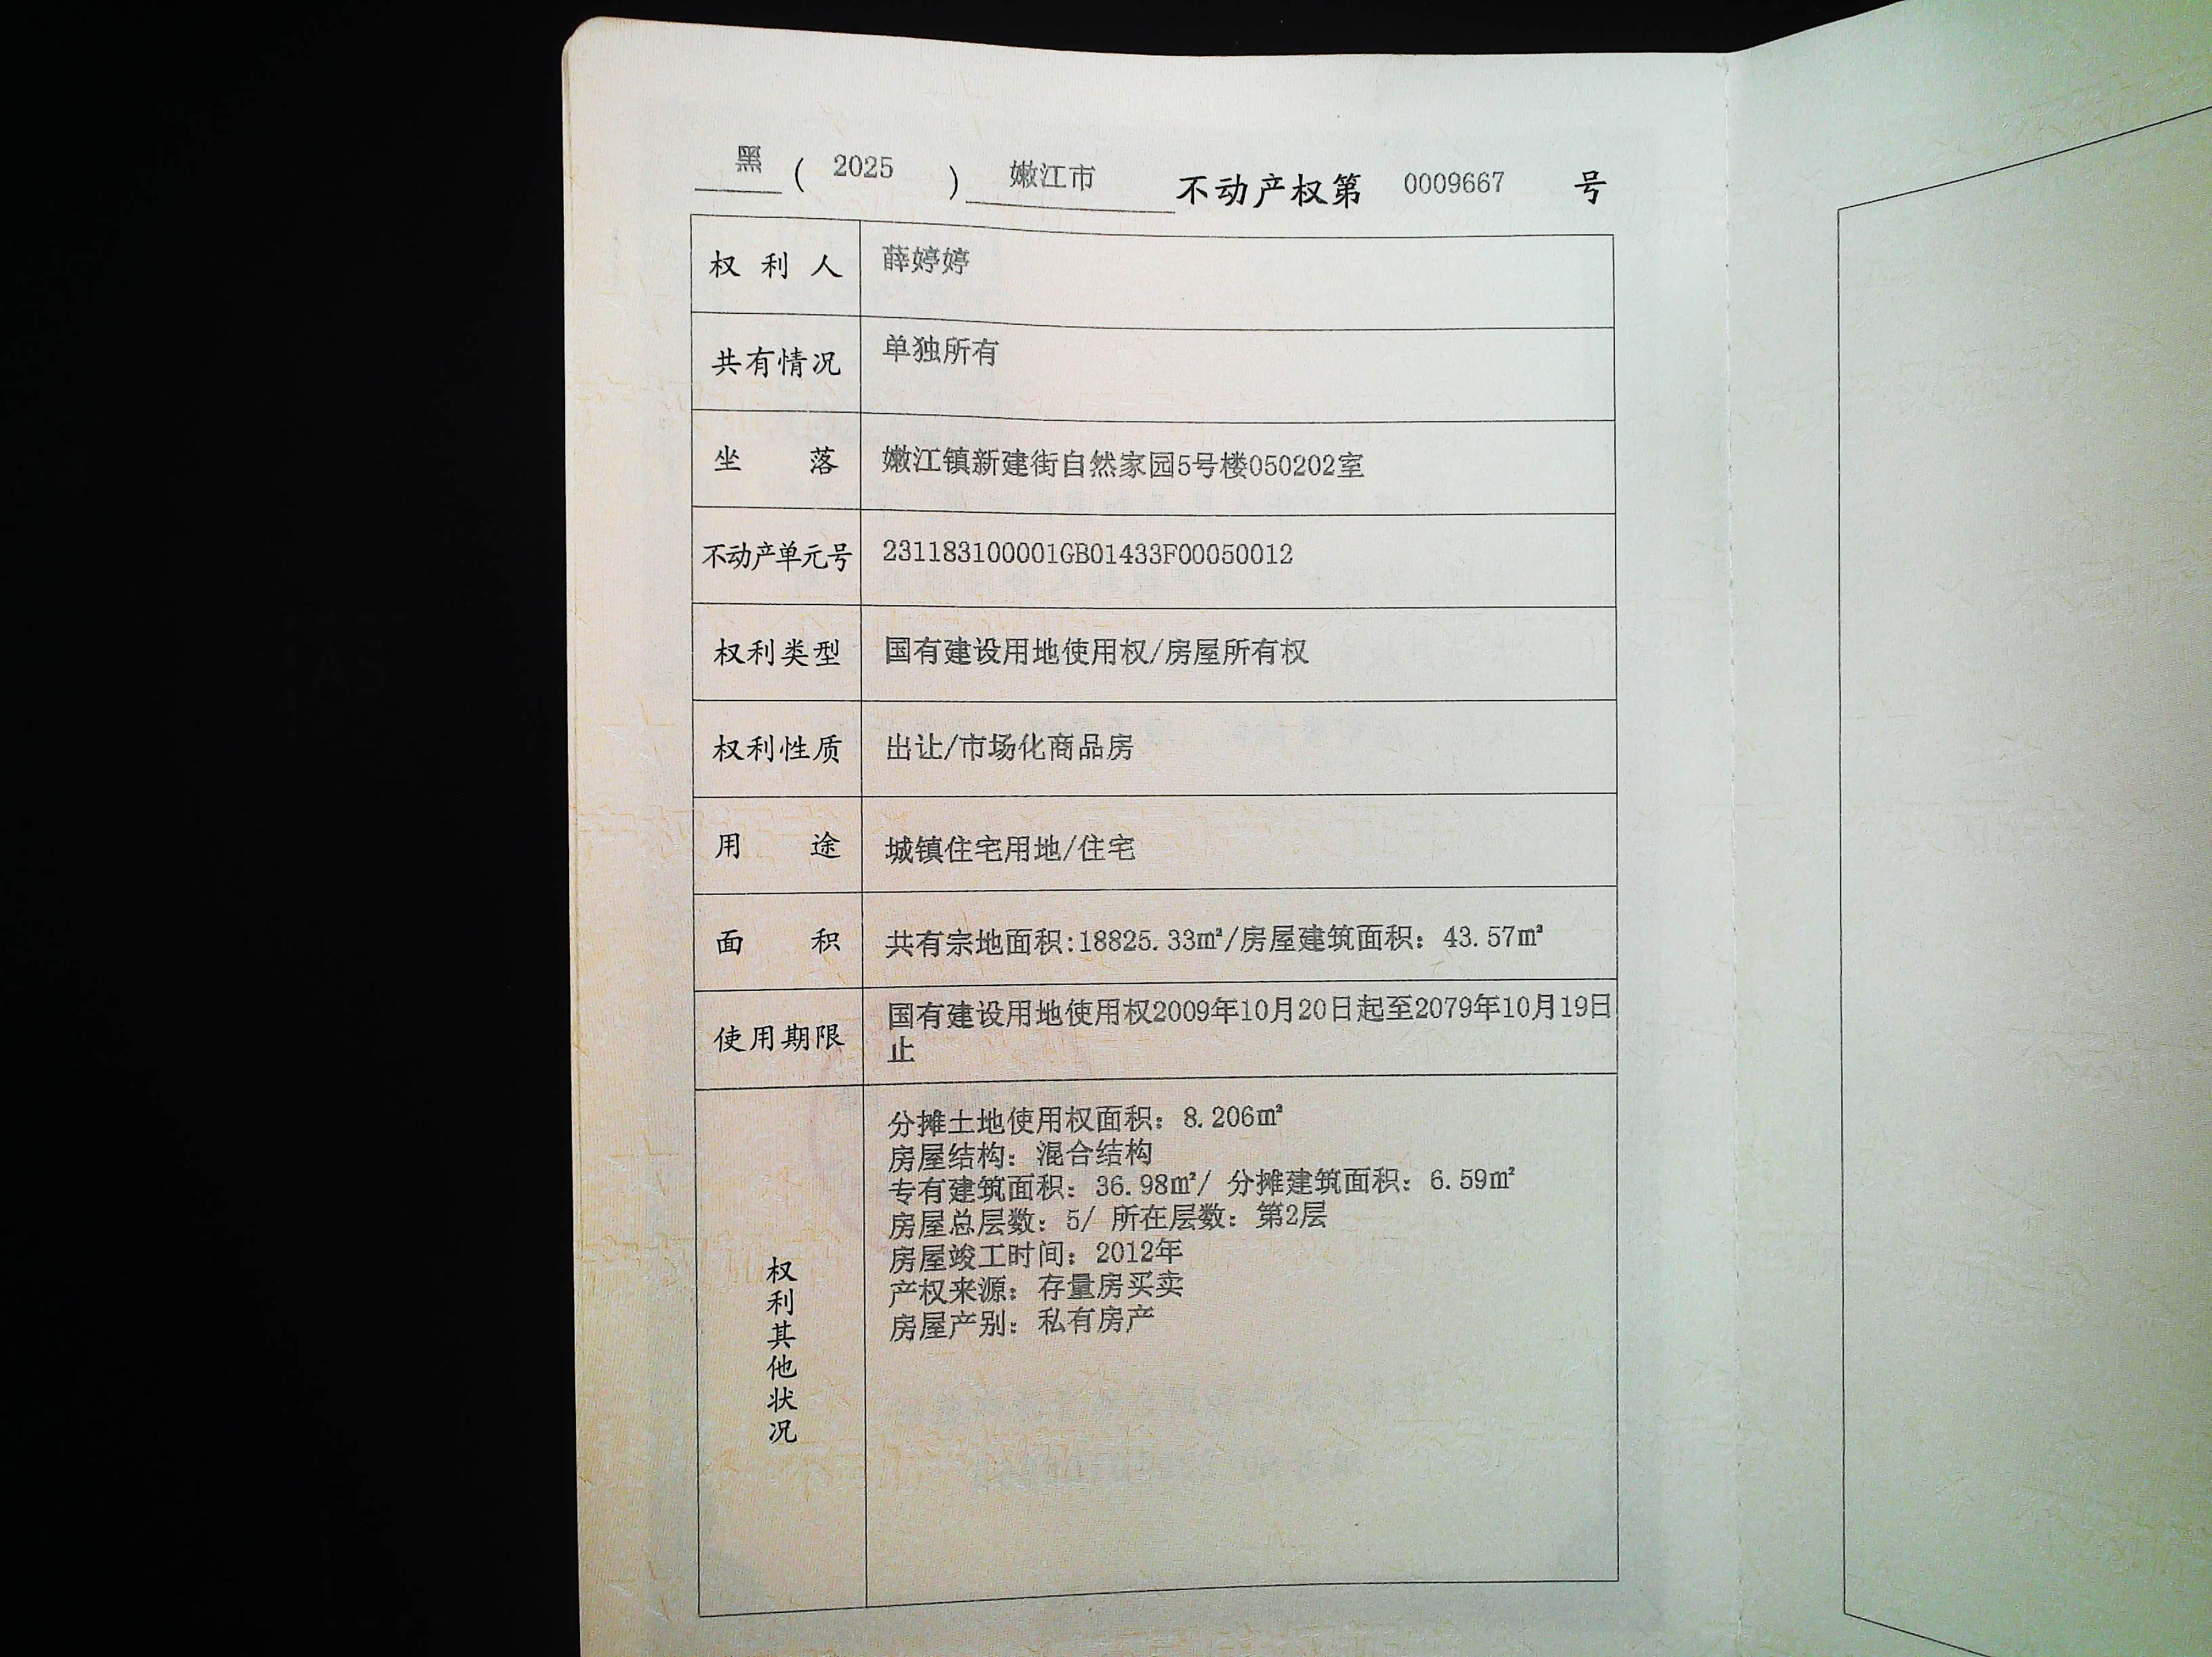 黑 ( 2025 ) 嫩江市 不动产权第 0009667 号
权利人 薛婷婷
共有情况 单独所有
坐落 嫩江镇新建街自然家园5号楼050202室
不动产单元号 231183100001GB01433F00050012
权利类型 国有建设用地使用权/房屋所有权
权利性质 出让/市场化商品房
用途 城镇住宅用地/住宅
面积 共有宗地面积:18825.33㎡/房屋建筑面积：43.57㎡
使用期限 国有建设用地使用权2009年10月20日起至2079年10月19日
止
权利其他状况
分摊土地使用权面积：8.206㎡
房屋结构：混合结构
专有建筑面积：36.98㎡/ 分摊建筑面积：6.59㎡
房屋总层数：5/ 所在层数：第2层
房屋竣工时间：2012年
产权来源：存量房买卖
房屋产别：私有房产